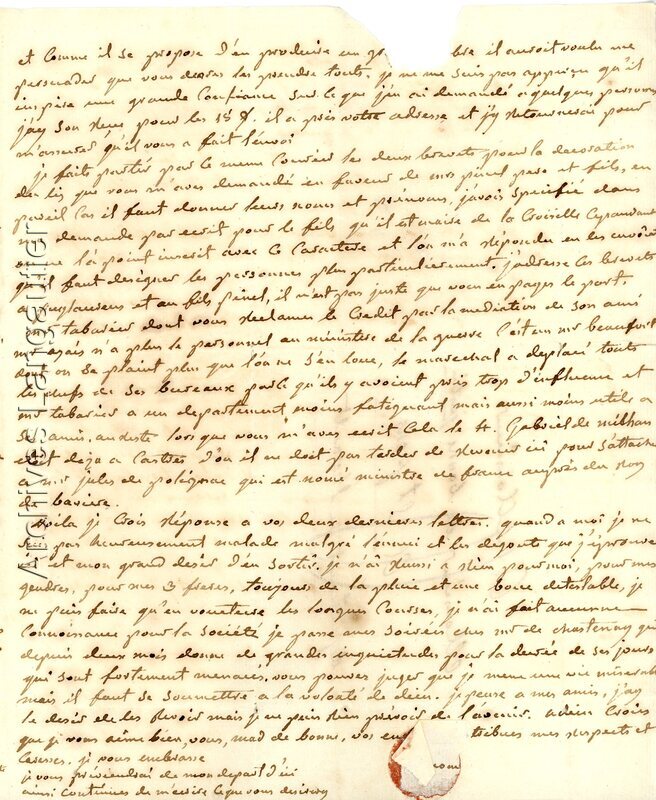 et Comme il se propose d'en produire un bre il auroit voulu me
persuader que vous devies les prendre touts. je ne me suis pas apperçu qu'il
inspire une grande Confiance sur ce que j'en ai demandé a quelques personnes
j'ay son reçu pour les 18 il a pris votre adresse et j'y retournerai pour
m'assurer qu'il vous a fait l'envoi
je faits partir par le meme Courier les deux brevets pour la decoration
du lis que vous m'aves demandé en faveur de mrs pinel pere et fils, en
pareil Cas il faut donner leurs noms et prénoms, j'avois specifié dans
ma demande par ecrit pour le fils qu'il est maire de la
on ne l'a point inserit avec ce Caractere et l'on m'a répondu en les
qu'il faut designer les personnes plus particulierement. j'adresse les brevets
a et au fils pinel, il n'est pas juste que vous en payes le port.
mr tabarier dont vous reclames le Credit par la mediation de son ami
mr n'a plus le personnel au ministère de la guerre C'est un mr beaufort
dont on se plaint plus que l'on ne s'en loue, le marechal a deplacé touts
les chefs de ses bureaux parce qu'ils y avoient pris trop d'influence et
mr tabarier a un departement moins fatigant mais aussi moins utile a
ses amis. au reste lors que vous m'aves ecrit Cela le H. Gabriel de
etoit deja a Castres d'ou il ne doit pas tarder de revenir ici pour s'attacher
a mr jules de polignac qui est nomé ministre de france aupres du roy
de baviere.
Voila je Crois réponse a vos deux dernieres lettres. quand a moi je ne
suis pas heureusement malade malgré l'ennui et les dégouts que j'éprouve
et mon grand desir d'en sortir. je n'ai reussi a rien pour moi, pour mes
gendres, pour mes 3 freres, toujours de la pluie et une boue detestable, je
ne puis faire qu'en voiture les longues Courses, je n'ai fait aucune
Connoissance pour la société je passe mes soirées chez mr de chastenay qui
depuis deux mois donne de grandes inquietudes pour la durée de ses jours
qui sont fortement menacés, vous pouves juger que je mene une vie miserable
mais il faut se soumettre a la volonté de dieu. je pense a mes amis, j'ay
le desir de les revoir mais je ne puis rien prévoir de l'avenir. adieu Crois
que je vous aime bien, vous, mad de bonne, vos enf tribues mes respects et
Caresses. je vous embrasse com
je vous préviendrai de mon depart d'ici
ainsi continues de m'écrire ce que vous desireres
Archives Langautier